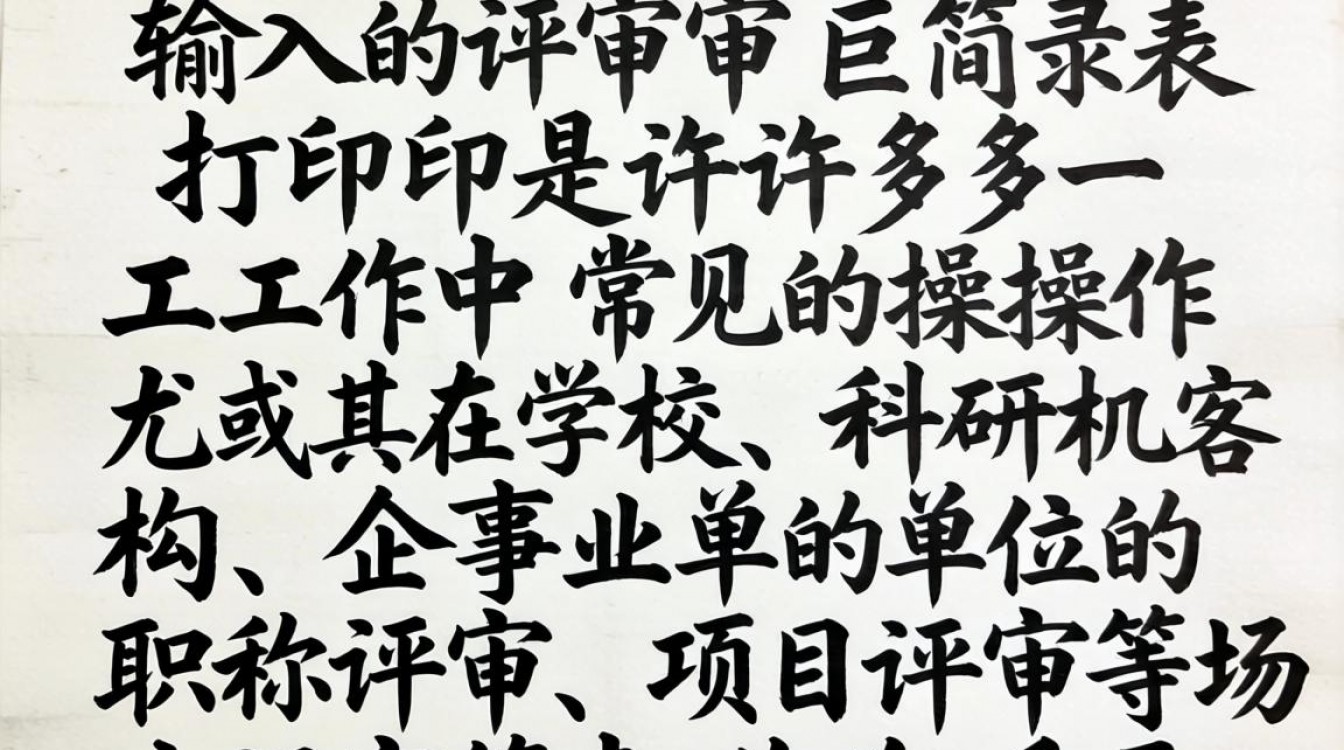 输入的评审审巨简录表
打印印是许许多多一
工工作中 常见的操操作
尤或其在学校、科研机客
构、企事业单的单位的
职称评审、项目评审等场